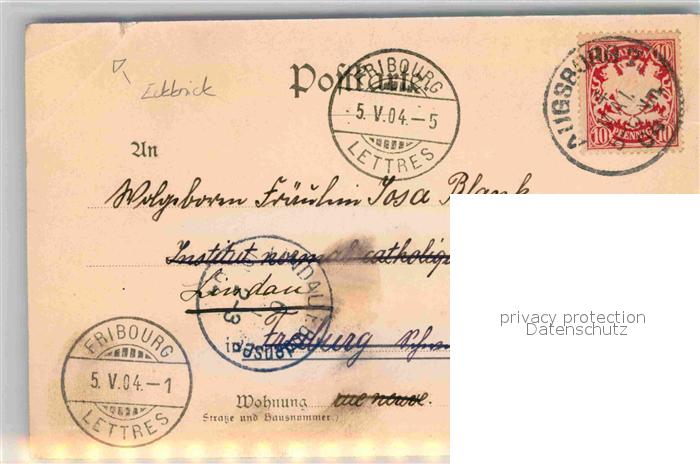 Eckknick
Postkarte
FRIBOURG
5.V.04.-5
LETTRES
AUGSBURG
BAYERN
10 10
PFENNIG
An
Wolgeborn Fräulein Josa Blank
Institut normal catholique
Lindau
in Freiburg Schw
LINDAU i. B.
FRIBOURG
5.V.04.-1
LETTRES
Wohnung rue neuve.
(Straße und Hausnummer.)
privacy protection
Datenschutz